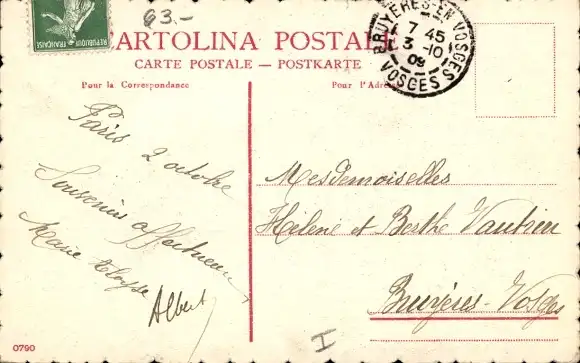 63.-
REPUBLIQUE FRANÇAISE
BRUYERES-EN-VOSGES
7 45
3 -10
09
VOSGES
CARTOLINA POSTALE
CARTE POSTALE — POSTKARTE
Pour la Correspondance
Pour l'Adre
Paris 2 octobre
Souvenirs affectueux
Marie
Albert
Mesdemoiselles
Hélène et Berthe Vautrin
Bruyères-Vosges
0790
I